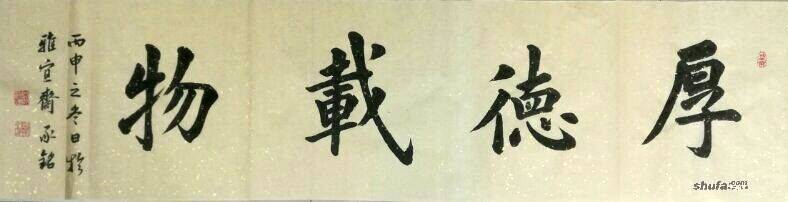 厚德載物
丙申之冬日於
雅宜齋承銘
shufa.com